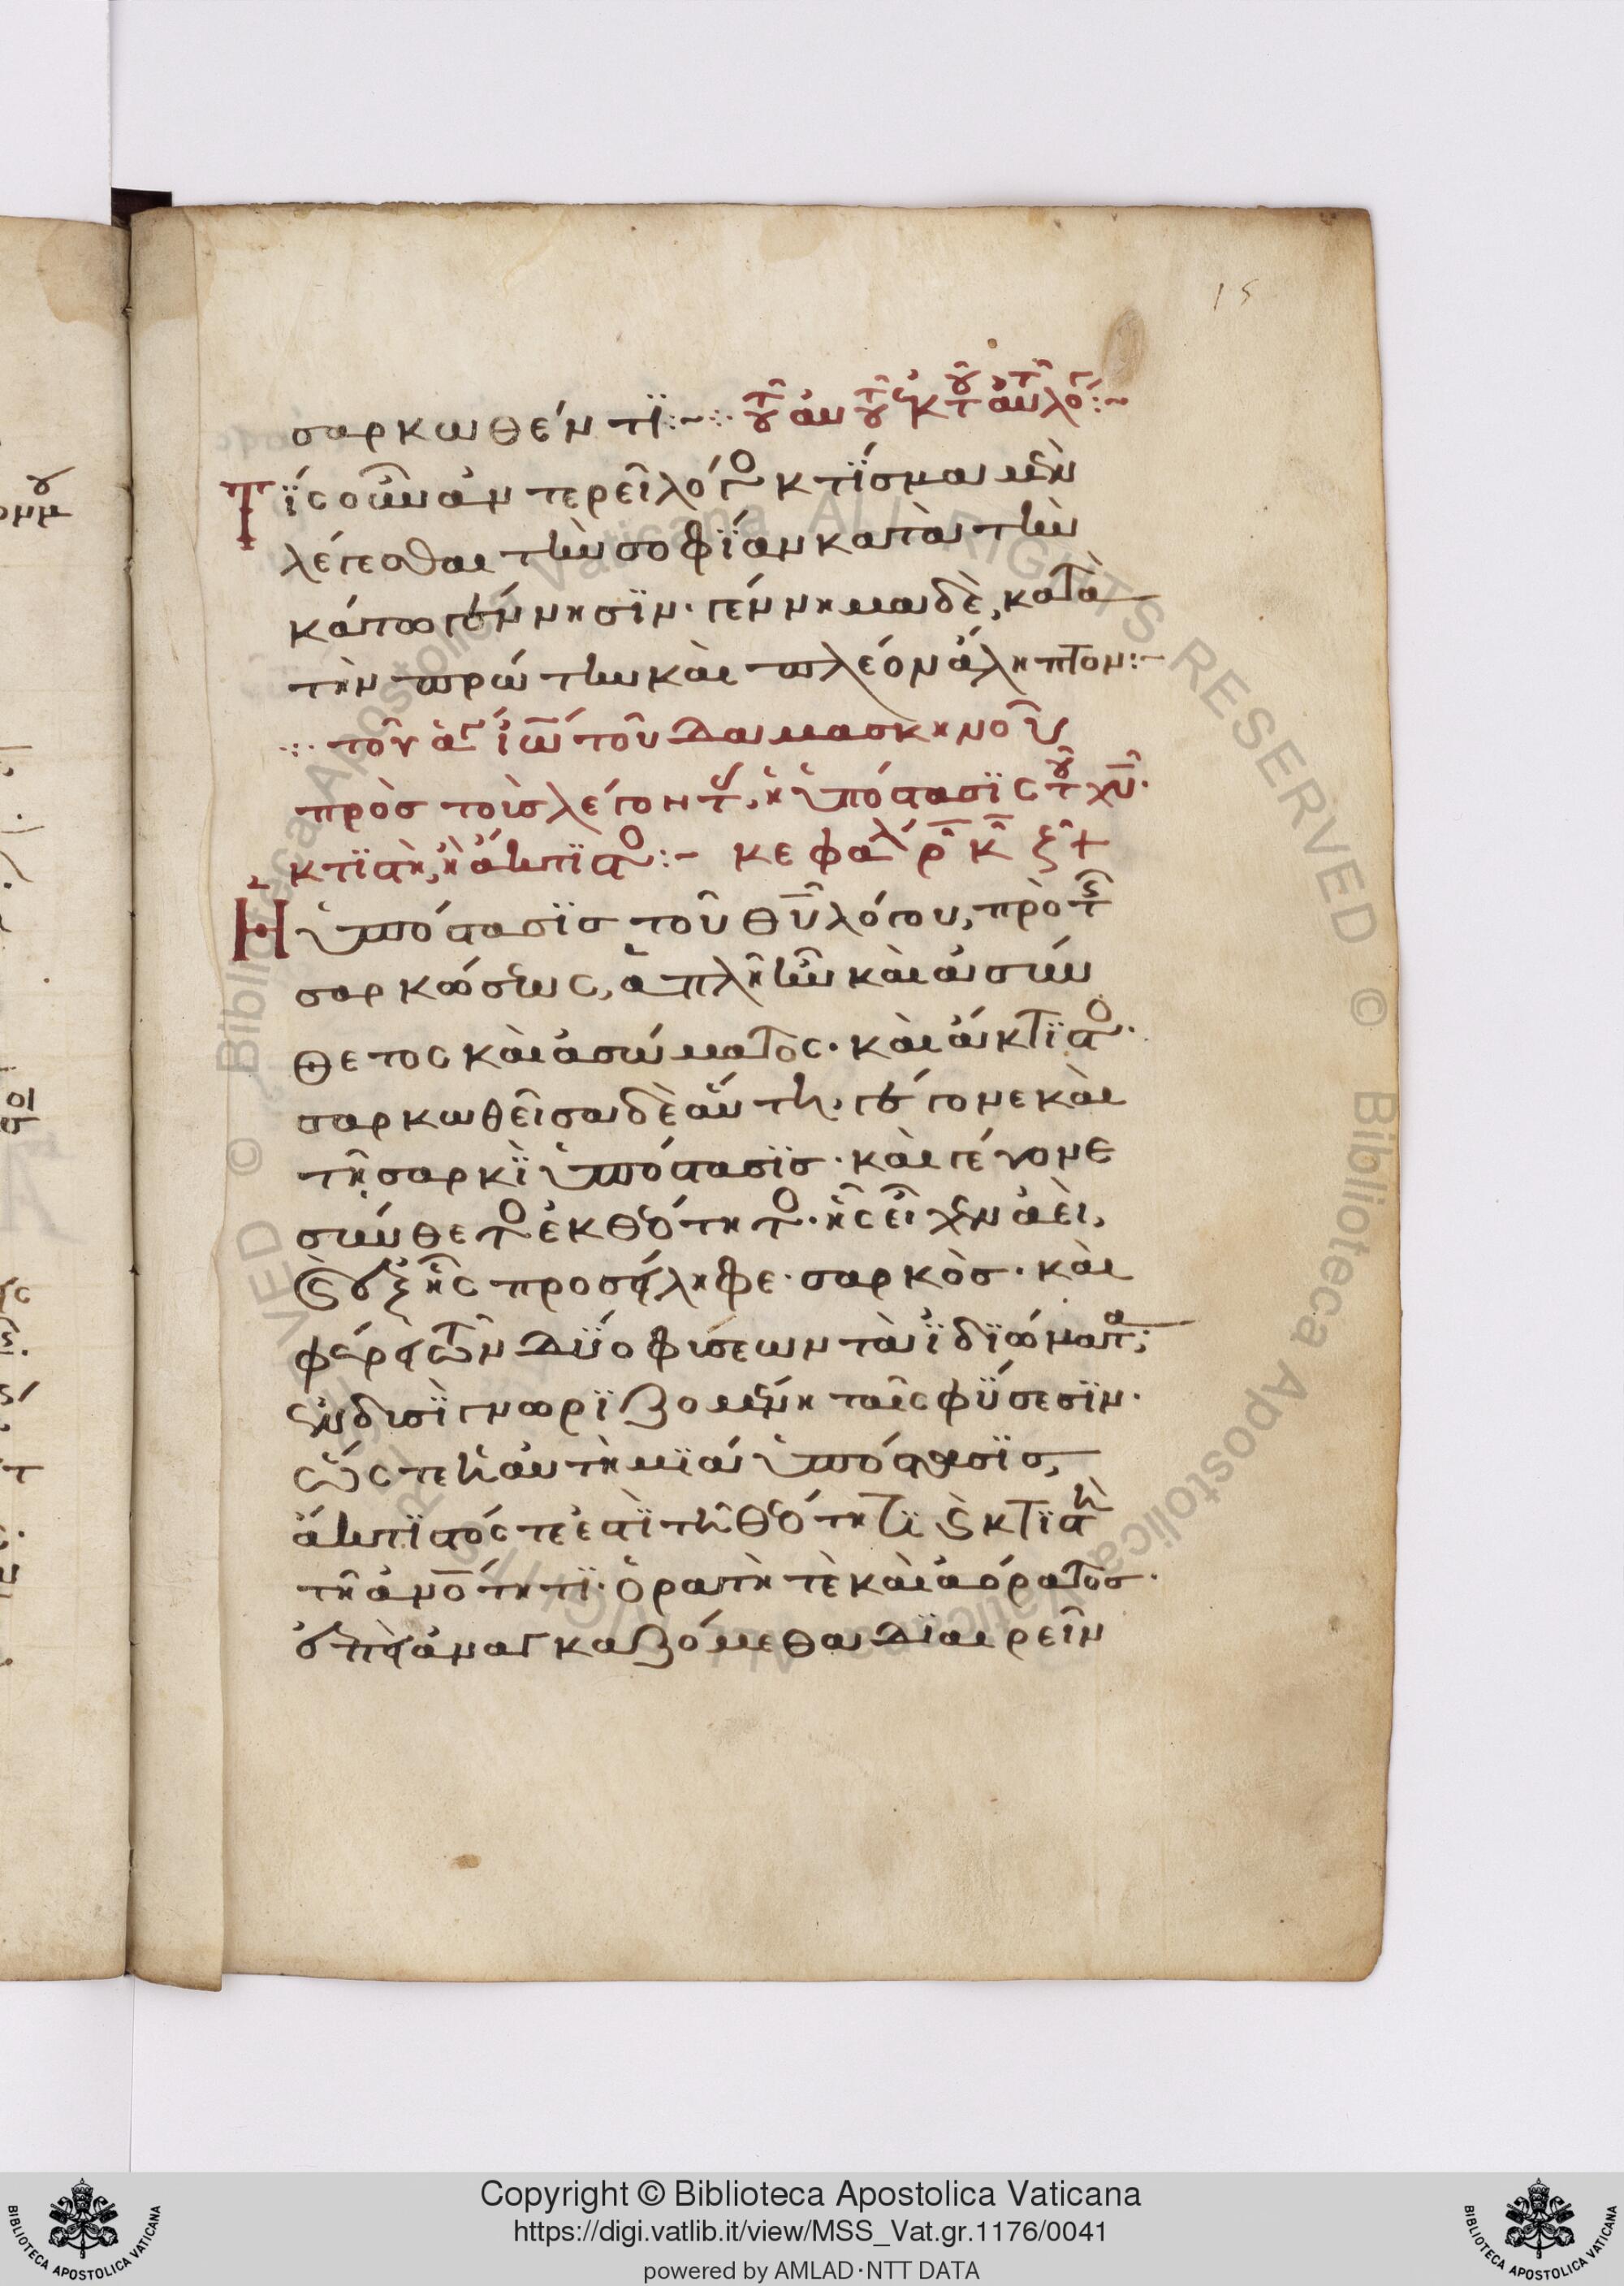 15
σαρκωθέντϊ :~ τοῦ αυτοῦ ἐκ τοῦ αὐτοῦ λόγ :~
Τίς οὖν ἀντερεῖ λόγος κτίσμα μὲν
λέγεσθαι τὴν σοφίαν κατὰ τὴν
κάτω γέννησϊν · γέννημα δὲ, κατὰ
τὴν πρώτην καὶ πλέον ἄληπτον :-
τοῦ ἁγ ἰω τοῦ Δαμασκηνοῦ
πρὸς τοὺς λέγοντας, ἡ ὑπόστασϊς τοῦ χυ ·
κτϊστὴ, ἢ ἄκτϊστος :- κεφάλ ρκξ +
Ἡ ὑπόστασϊς τοῦ θυ λόγου, πρὸ τῆς
σαρκώσεως, ἁπλῆ ἦν καὶ ἀσύν
θετος καὶ ἀσώματος · καὶ ἄκτϊστος ·
σαρκωθεῖσα δὲ αὕτη, γέγονε καὶ
τῆ σαρκὶ ὑπόστασϊς · καὶ γέγονε
σύνθετος ἐκ θεότητος · ἧς εἶχεν ἀεὶ,
καὶ ἐξ ἧς προσείληφε · σαρκὸς · καὶ
φέρει τῶν Δύο φύσεων τὰ ἰδϊώματα,
ἐν δυσὶ γνωρϊζομένη ταῖς φύσεσϊν ·
ὥστε ἡ αὐτὴ μία ὑπόστασϊς,
ἄκτϊστός τέ ἐστϊ τῆ θεότητϊ καὶ κτϊστὴ
τῆ ἀνοτητϊ · ὁρατὴ τὲ καὶ ἀόρατος ·
ἐπεὶ ἀναγκαζόμεθα Δϊαιρεῖν
Copyright © Biblioteca Apostolica Vaticana
https://digi.vatlib.it/view/MSS_Vat.gr.1176/0041
powered by AMLAD·NTT DATA